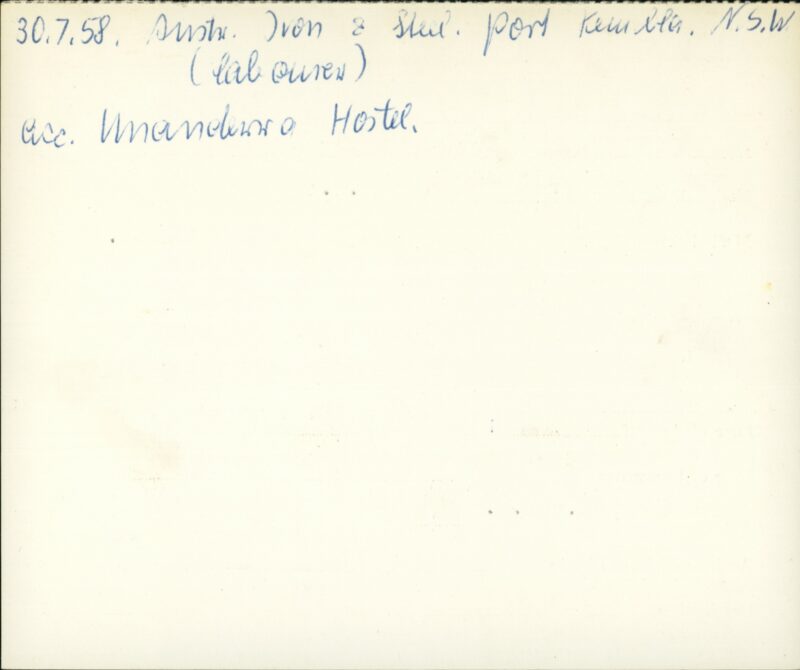 30.7.58. Austr. Iron & Steel. Port Kembla. N.S.W
(labourer)
acc. Unanderra Hostel.